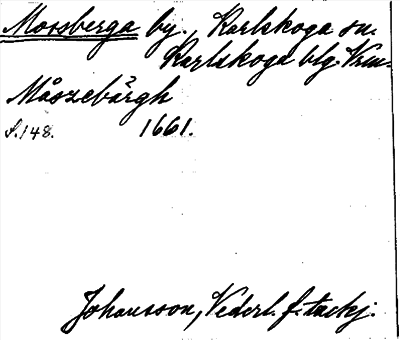 Mossberga by., Karlskoga sn.
Karlskoga blg. Vrm.
Måszebärgh
S. 148. 1661.
Johansson, Vederl. f. tackj.